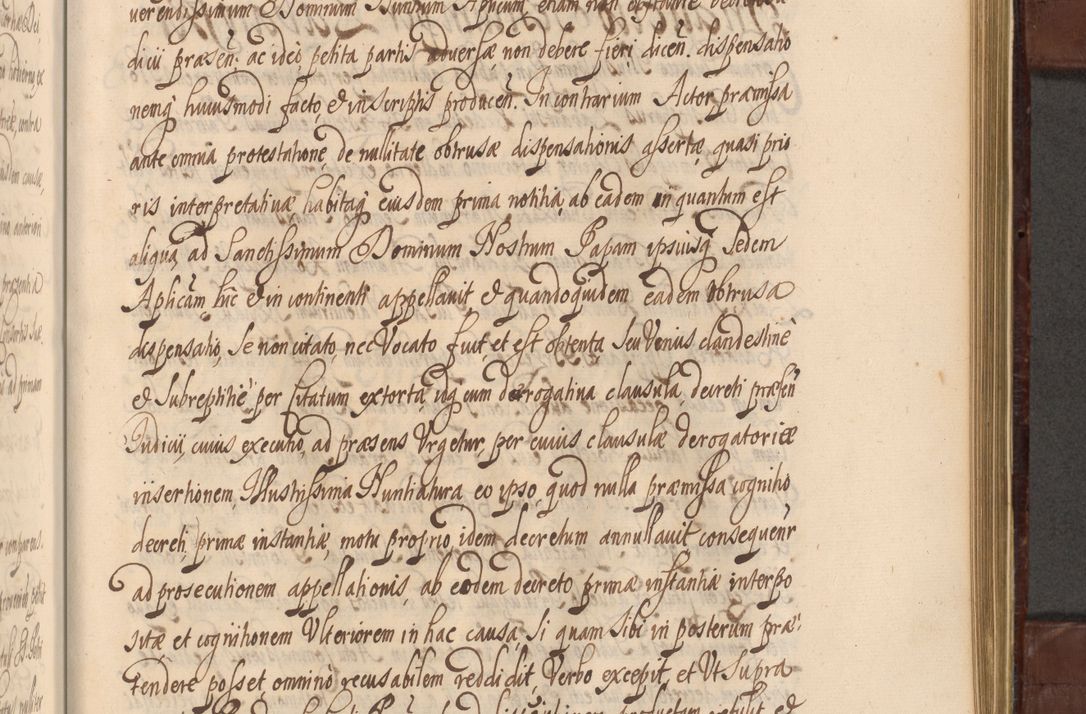 uerendissimum et Dominum Nuntium Aplicum, etiam non
dicii præsen̄. ac ideo petita partis adversæ non debere fieri dicen̄. dispensatio
nemq̄ huiusmodi facto et in scriptis producen̄. In contrarium Actor præmissa
ante omnia protestatione, de nullitate obtrusæ dispensationis assertæ, quasi prio
ris interpretativæ habitaq̄ eiusdem prima notitia, ab eadem in quantum est
aliqua, ad Sanctissimum Dominum Nostrum Papam ipsuisq̄ Sedem
Aplicam, hic et in continenti appellavit, et quandoquidem eadem obtrusa
dispensatio, Se non citato, nec Vocato fuit, et est obtenta, Seu Verius clandestinè
et Subreptitiè per Citatum extorta, idq̄ cum derogativa clausula, decreti præsen̄
Iudicii, cuius executio, ad præsens Vrgetur, per cuius clausulæ derogatoriæ
insertionem, Illustrissima Nuntiatura, eo ipso, quod nulla præmissa cognitio
decreti, primæ instantiæ, motu proprio, idem decretum annullavit consequenr̄
ad prosecutionem appellationis, ab eodem decreto primæ instantiæ interpo
sitæ, et cognitionem Vlteriorem in hac causa, Si quam Sibi in posterum præ-
tendere posset, omnino recusabilem reddidit, Verbo excepit, et Vt Supra
productum extulit, et